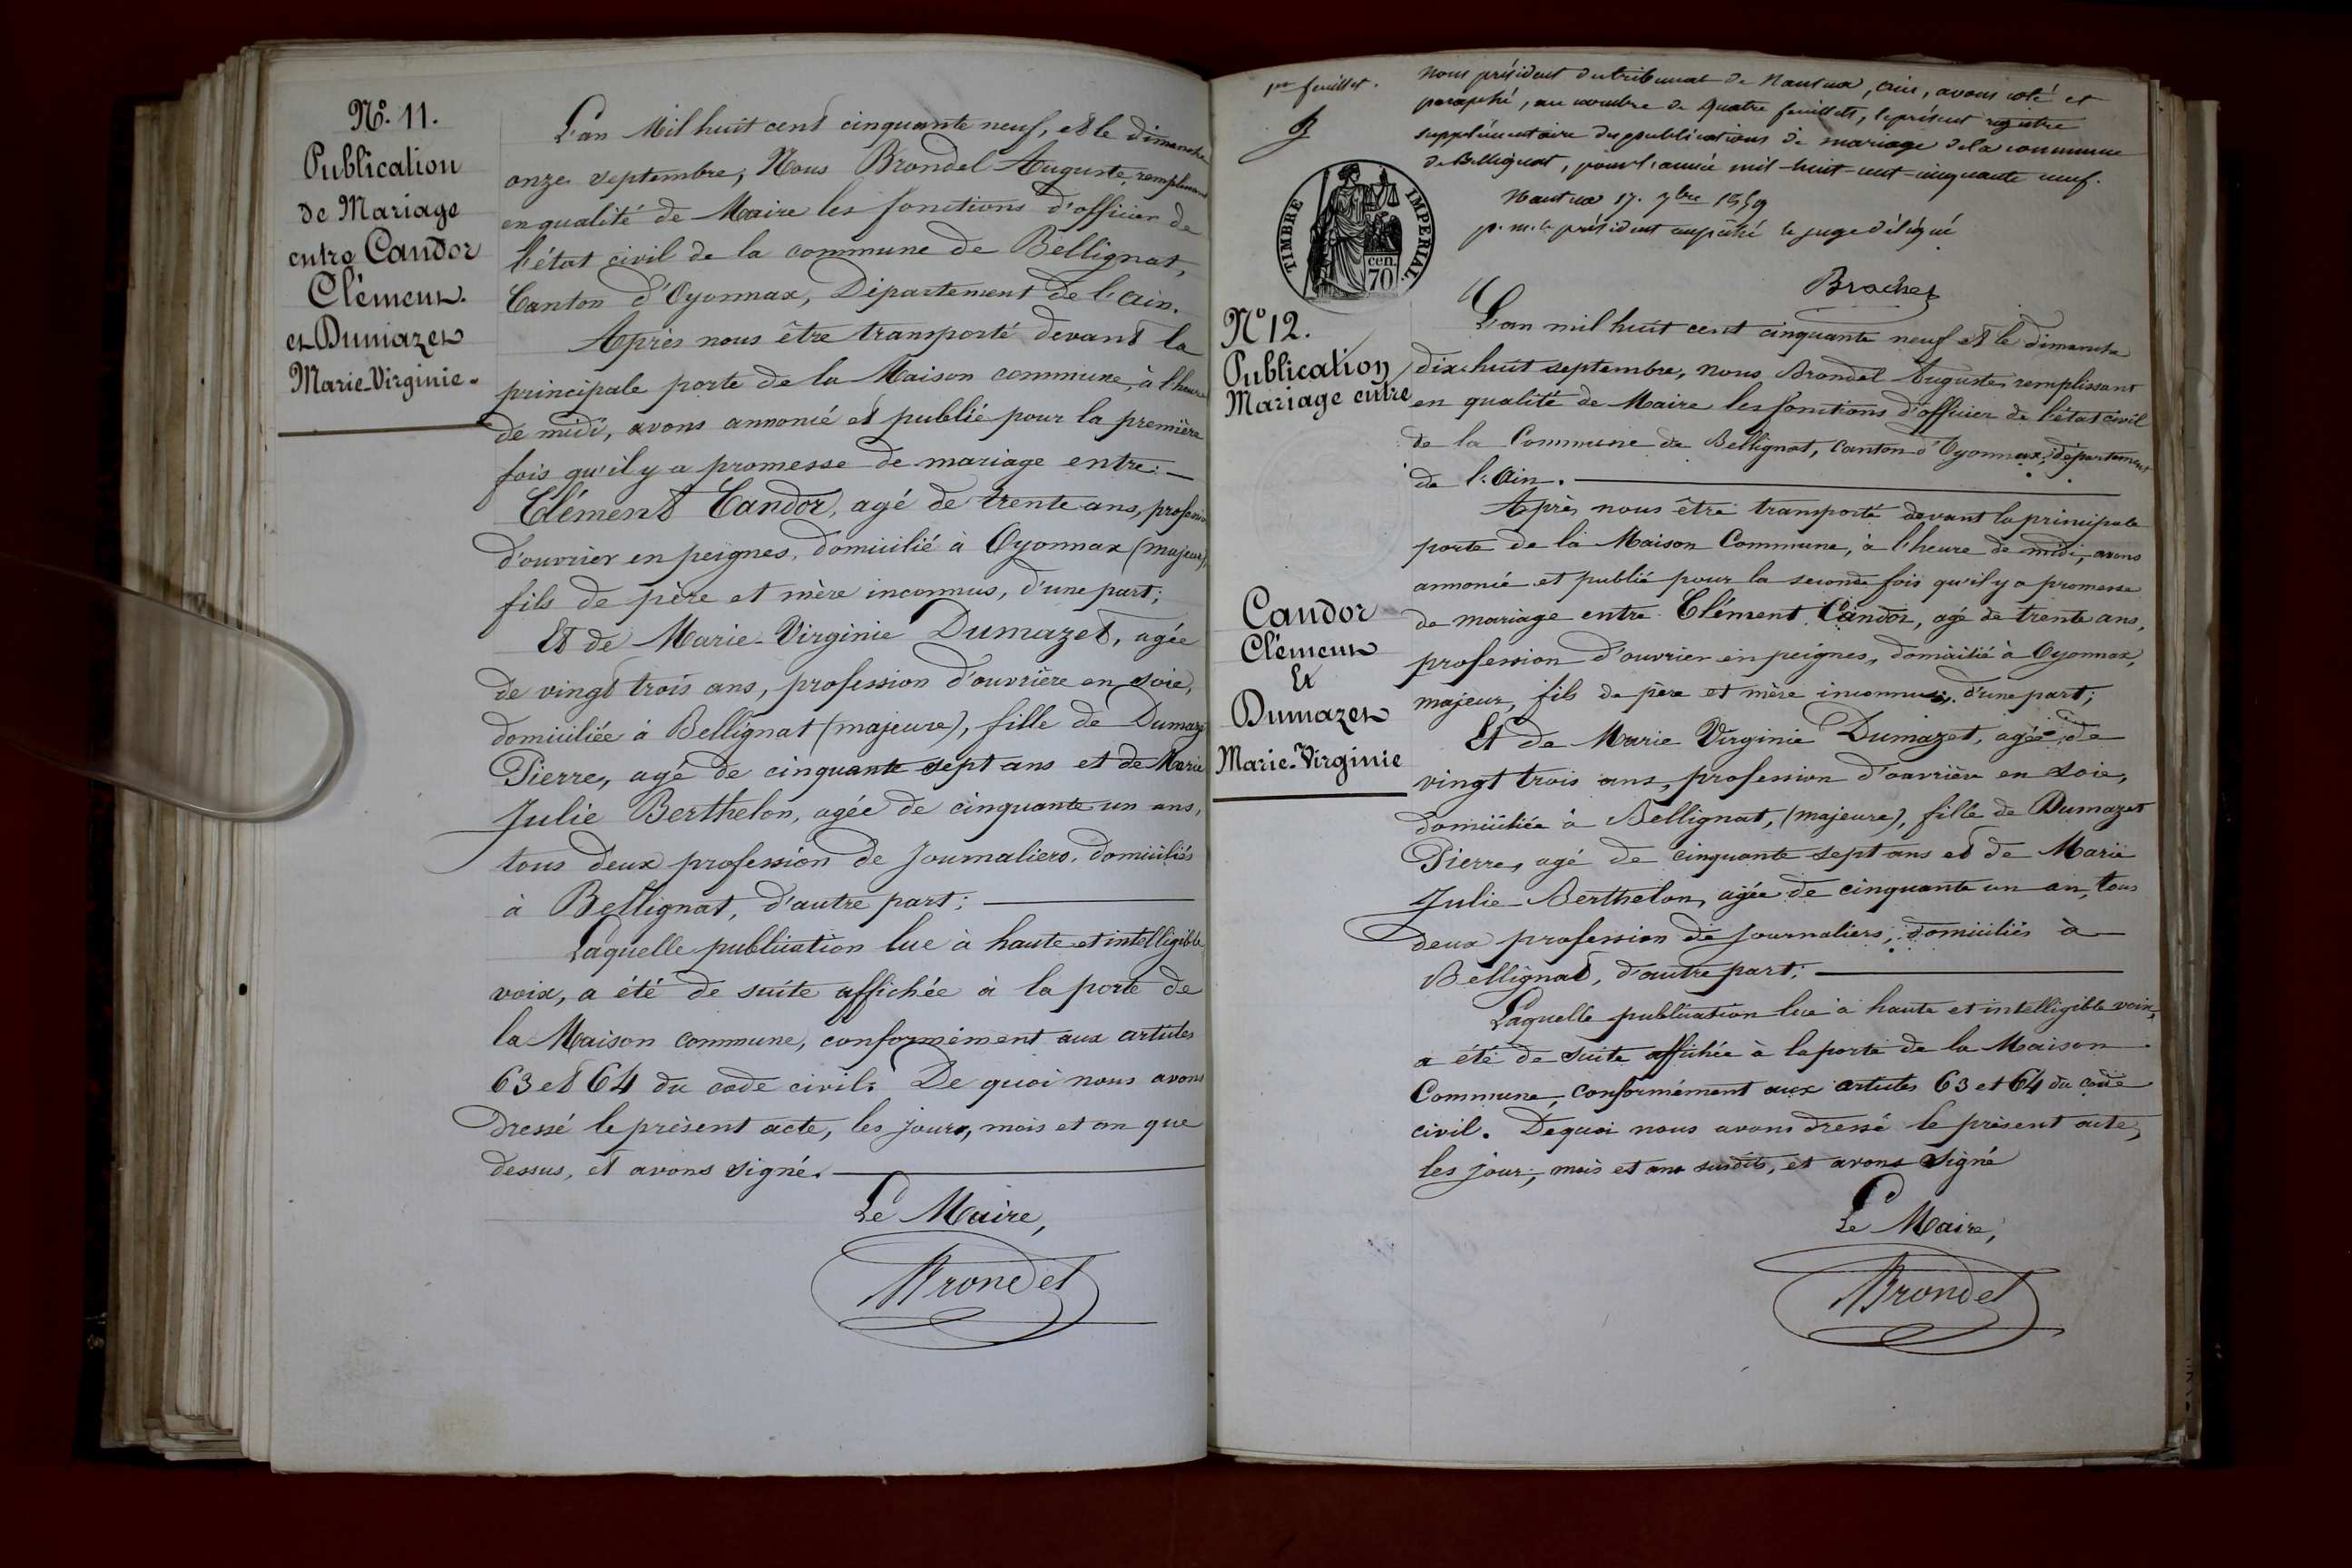 N°. 11.
Publication
de Mariage
entre Candor
Clément.
et Dumazet
Marie-Virginie.
L'an Mil huit cent cinquante neuf, et le dimanche
onze septembre, Nous Brondel Auguste, remplissant
en qualité de Maire les fonctions d'officier de
l'état civil de la commune de Bellignat,
Canton d'Oyonnax, Département de l'Ain.
Après nous être transporté devant la
principale porte de la Maison commune, à l'heure
de midi, avons annoncé et publié pour la première
fois qu'il y a promesse de mariage entre :
Clément Candor, agé de trente ans, profession
d'ouvrier en peignes, domicilié à Oyonnax (majeur),
fils de père et mère inconnus, d'une part;
Et de Marie-Virginie Dumazet, agée
de vingt trois ans, profession d'ouvrière en soie,
domiciliée à Bellignat (majeure), fille de Dumazet
Pierre, agé de cinquante sept ans et de Marie
Julie Berthelon, agée de cinquante un ans,
tous deux profession de Journaliers, domiciliés
à Bellignat, d'autre part;
Laquelle publication lue à haute et intelligible
voix, a été de suite affichée à la porte de
la Maison commune, conformément aux articles
63 et 64 du code civil. De quoi nous avons
dressé le présent acte, les jours, mois et an que
dessus, et avons signé.
Le Maire,
Brondel
1er feuillet.
Nous président du tribunal de Nantua, Ain, avons coté et
paraphé, au nombre de quatre feuillets, le présent registre
supplémentaire des publications de mariage de la commune
de Bellignat, pour l'année mil-huit-cent-cinquante neuf.
Nantua 17. 7bre 1859
p. m. le président empêché le juge délégué
Brochet
TIMBRE IMPERIAL.
cen. 70
N° 12.
Publication
Mariage entre
Candor
Clément
Et
Dumazet
Marie-Virginie
L'an mil huit cent cinquante neuf et le dimanche
dix-huit septembre, nous Brondel Auguste, remplissant
en qualité de Maire les fonctions d'officier de l'état civil
de la Commune de Bellignat, canton d'Oyonnax, département
de l'Ain.
Après nous être transporté devant la principale
porte de la Maison Commune, à l'heure de midi, avons
annoncé et publié pour la seconde fois qu'il y a promesse
de mariage entre Clément Candor, agé de trente ans,
profession d'ouvrier en peignes, domicilié à Oyonnax,
majeur, fils de père et mère inconnus, d'une part;
Et de Marie Virginie Dumazet, agée de
vingt trois ans, profession d'ouvrière en soie,
domiciliée à Bellignat, (majeure), fille de Dumazet
Pierre, agé de cinquante sept ans et de Marie
Julie Berthelon, agée de cinquante un an, tous
deux profession de Journaliers, domiciliés à
Bellignat, d'autre part;
Laquelle publication lue à haute et intelligible voix,
a été de suite affichée à la porte de la Maison
Commune, conformément aux articles 63 et 64 du code
civil. De quoi nous avons dressé le présent acte,
les jour, mois et an susdits, et avons signé
Le Maire,
Brondel